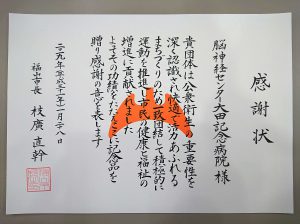 感謝状
脳神経センター大田記念病院 様
貴団体は公衆衛生の重要性を
深く認識され快適で活力あふれる
まちづくりのため一致団結して積極的に
運動を推進し市民の健康と福祉の
増進に貢献されました
よってその功績をたたえここに記念品を
贈り感謝の意を表します
福山市長 枝廣 直幹